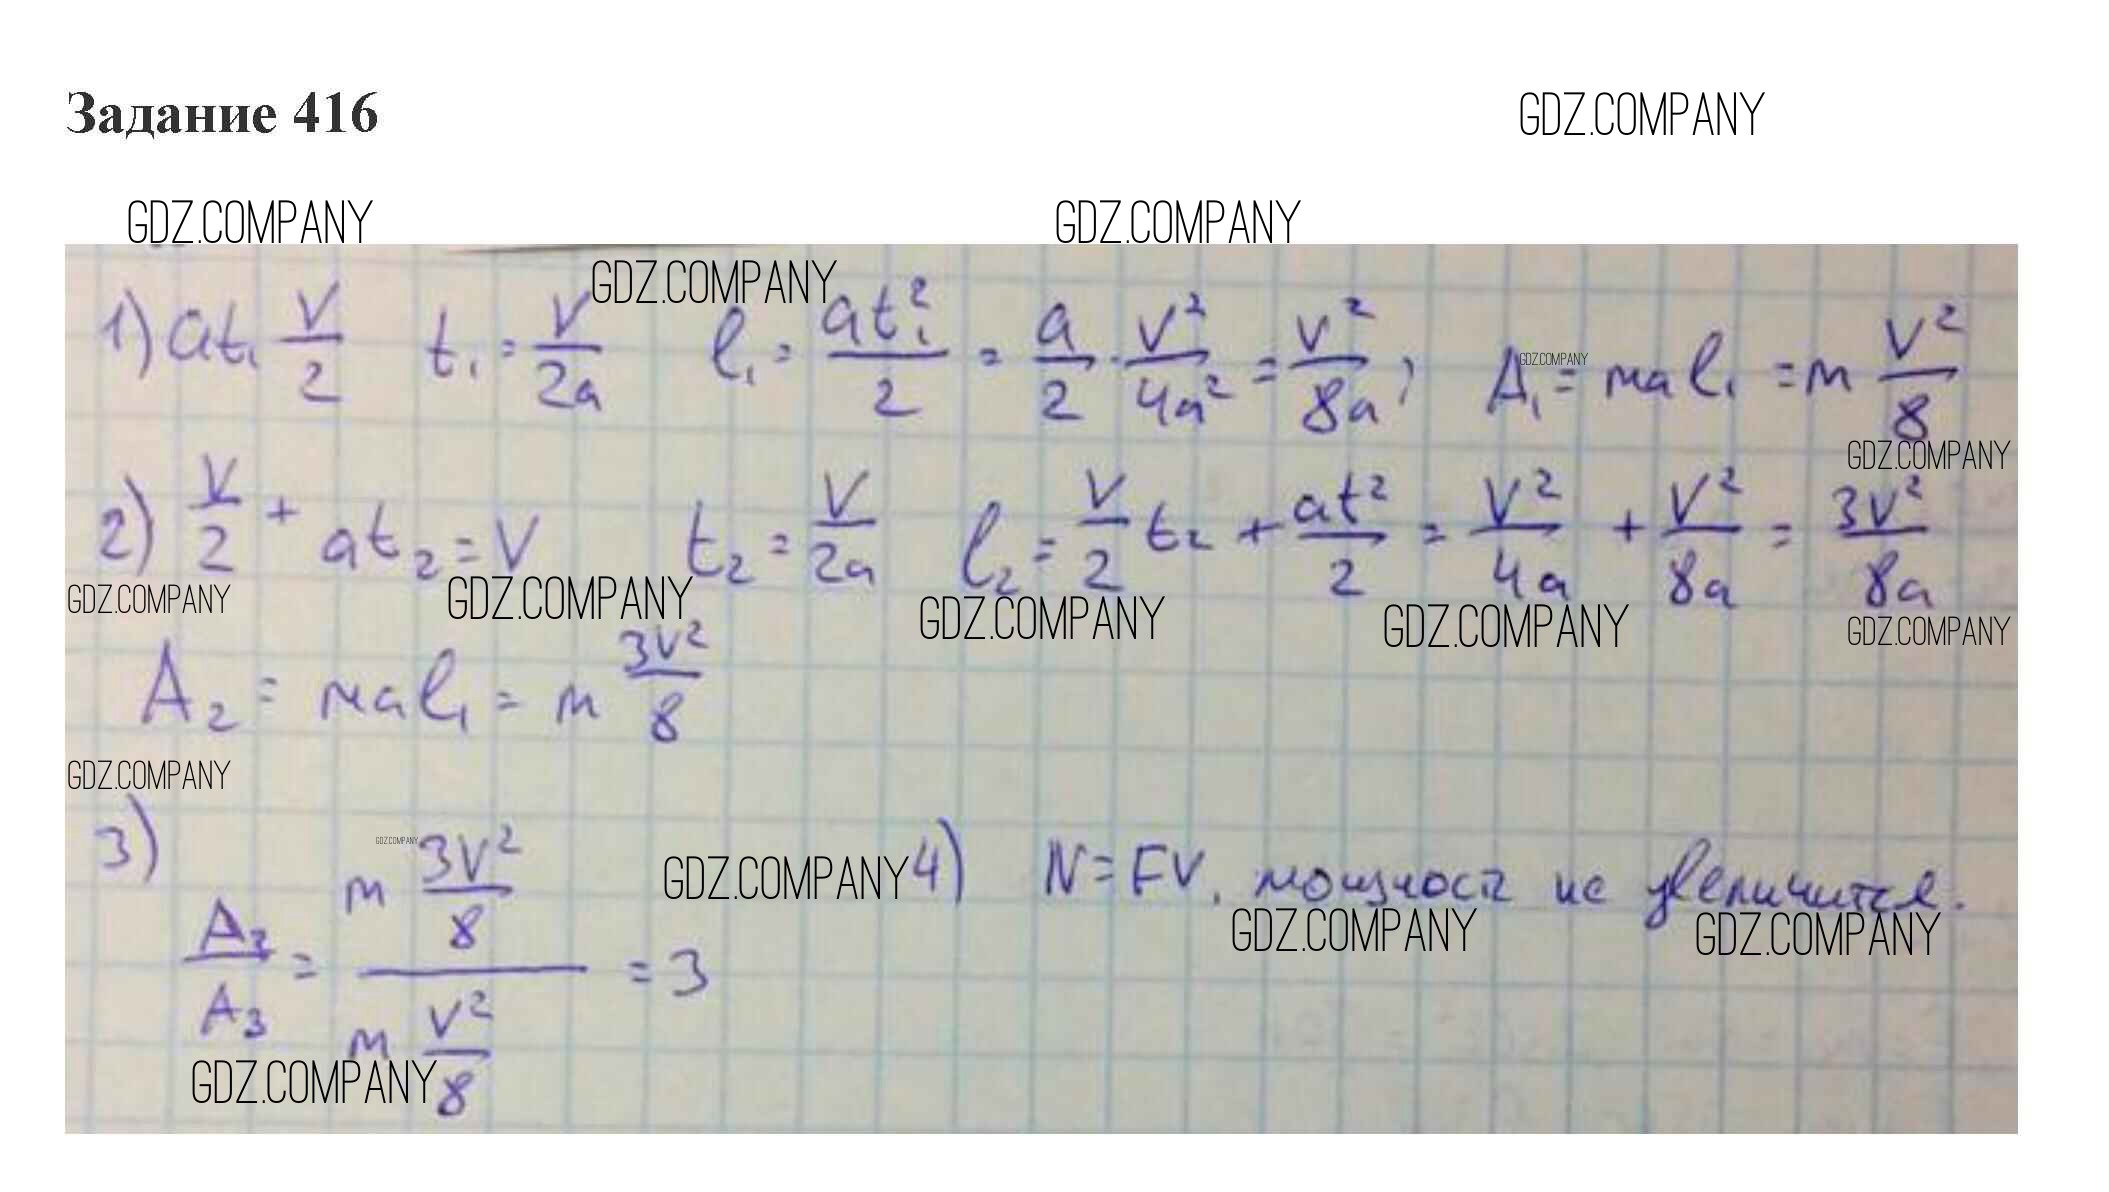 Задание 416
GDZ.COMPANY
GDZ.COMPANY GDZ.COMPANY
GDZ.COMPANY
1) at₁ V/2 t₁ = V/2a l₁ = at₁²/2 = a/2 · V²/4a² = V²/8a; A₁ = mal₁ = m V²/8
GDZ.COMPANY
GDZ.COMPANY
2) V/2 + at₂ = V t₂ = V/2a l₂ = V/2 t₂ + at²/2 = V²/4a + V²/8a = 3V²/8a
GDZ.COMPANY GDZ.COMPANY GDZ.COMPANY GDZ.COMPANY GDZ.COMPANY
A₂ = mal₁ = m 3V²/8
GDZ.COMPANY
3) A₃/A₃ = (m 3V²/8)/(m V²/8) = 3
GDZ.COMPANY
GDZ.COMPANY
4) N = FV, мощность не увеличится.
GDZ.COMPANY GDZ.COMPANY
GDZ.COMPANY